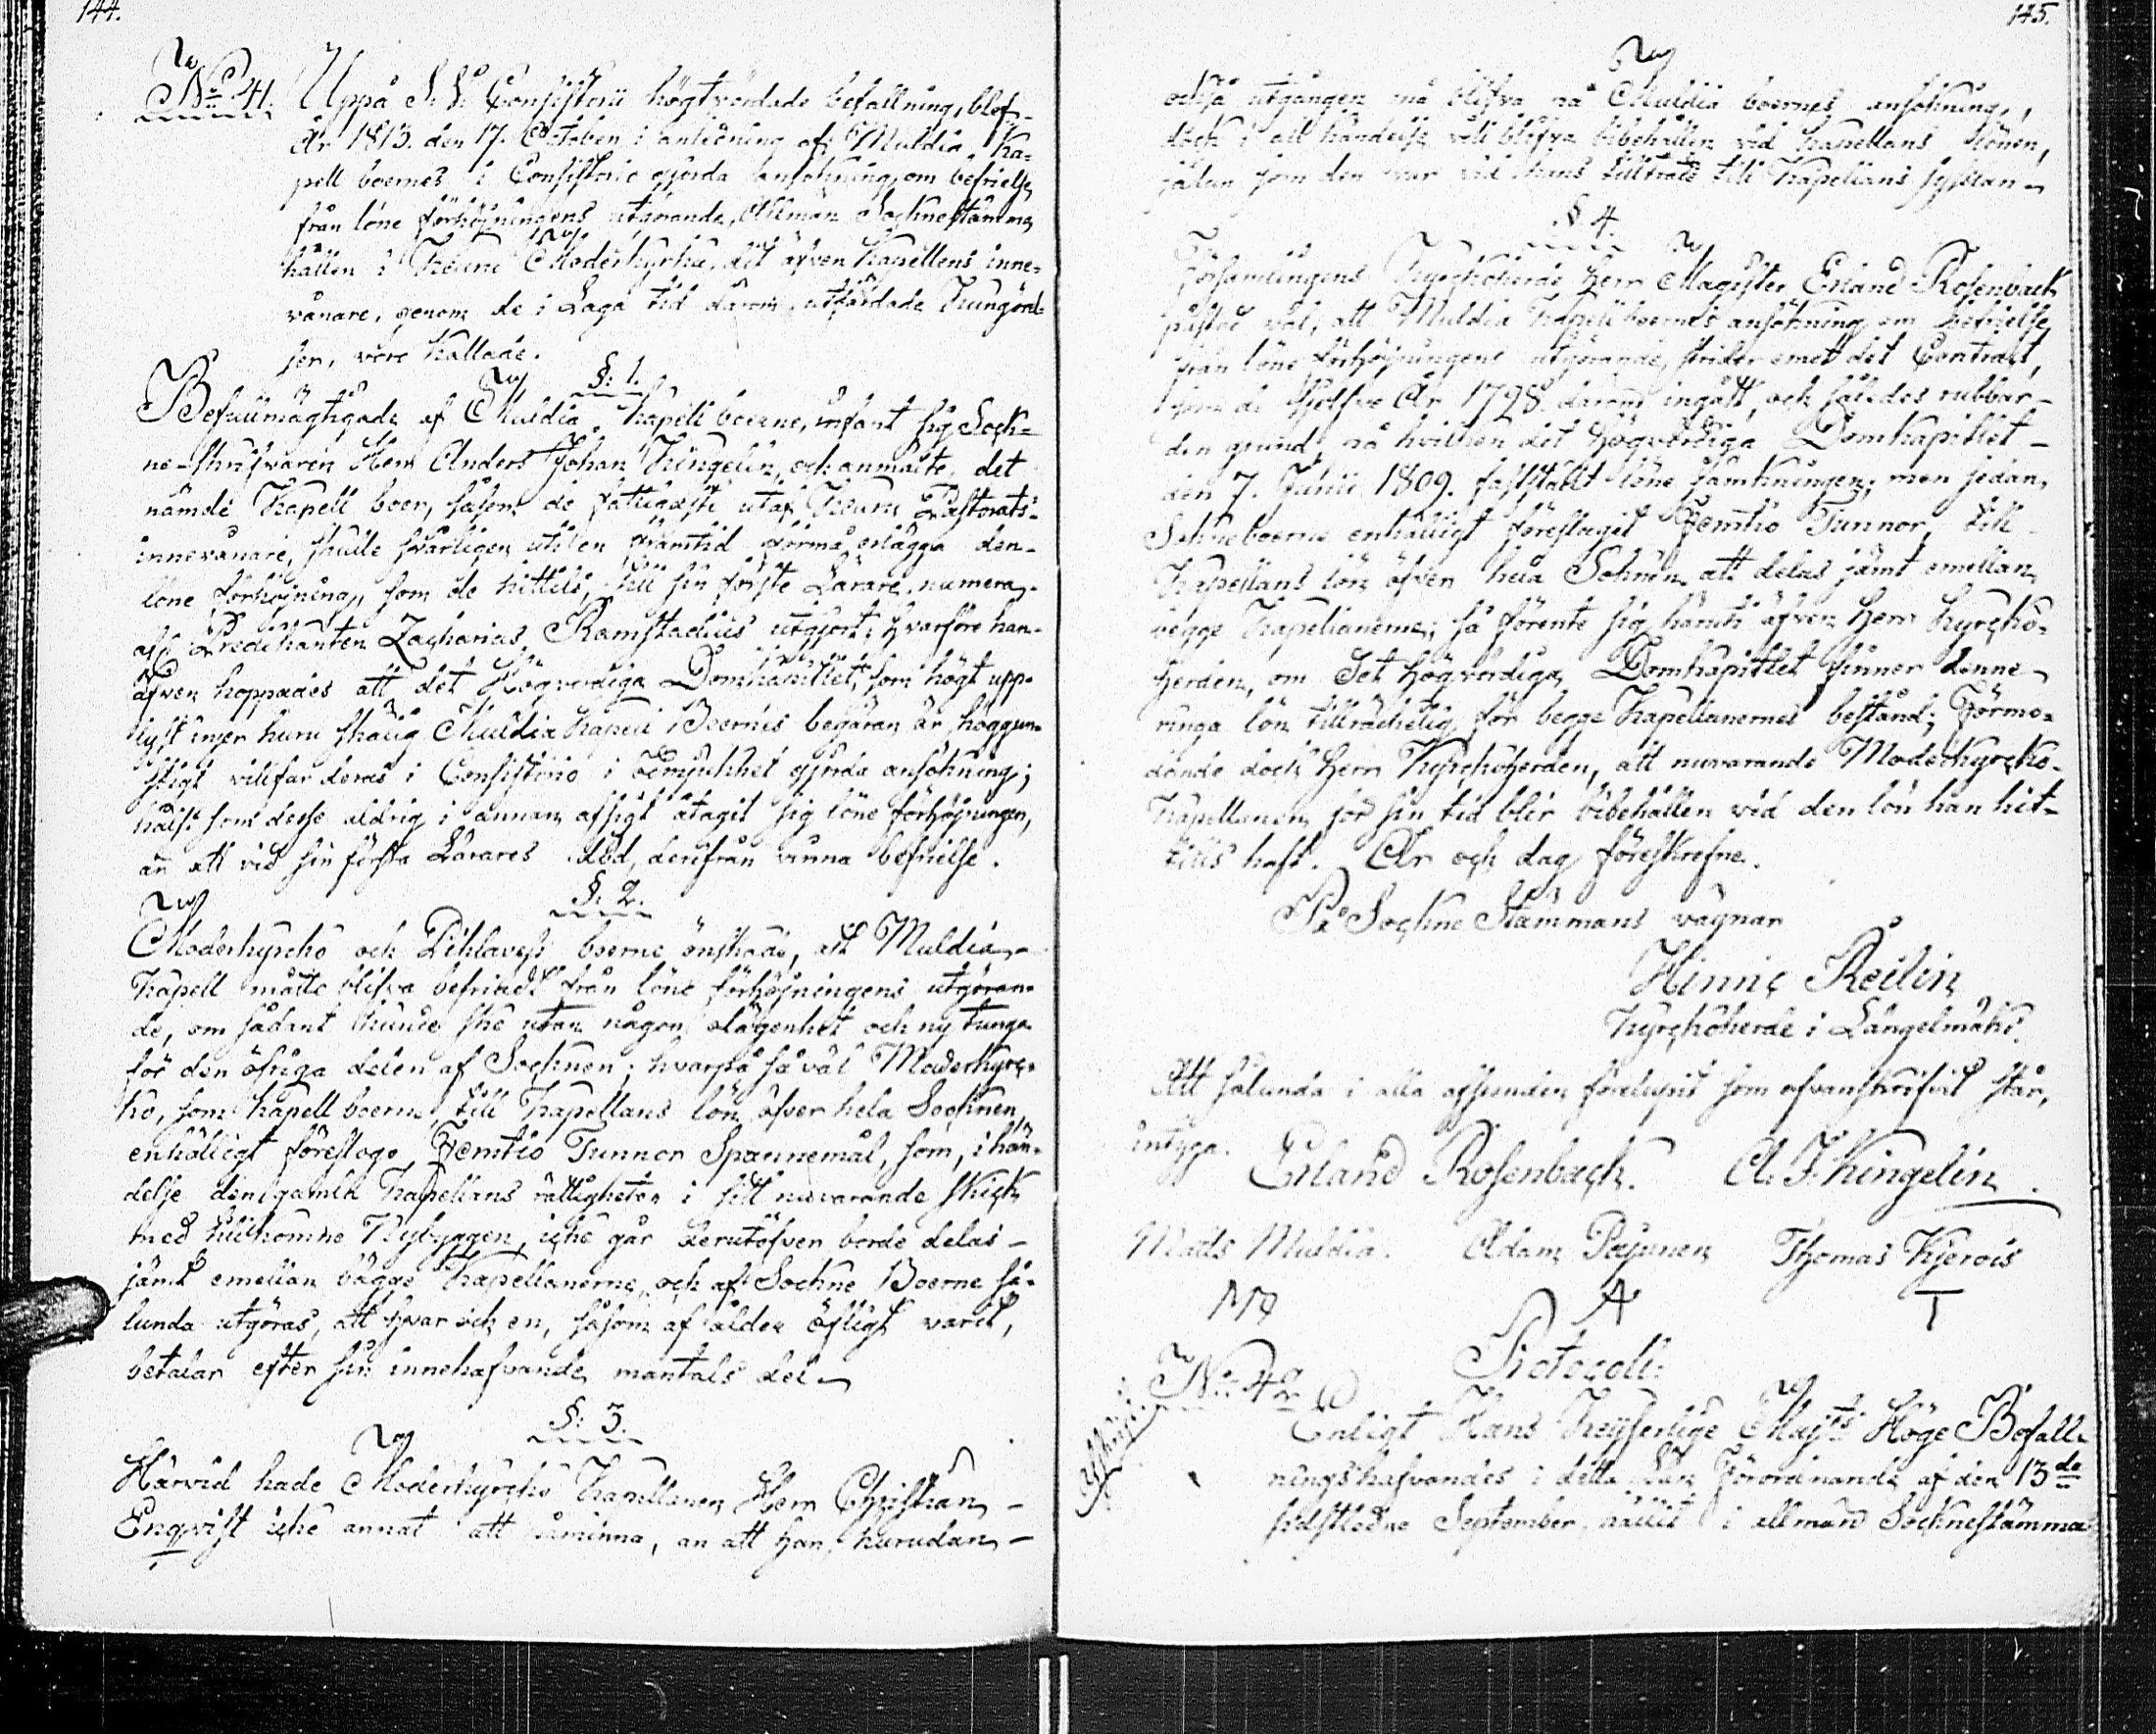 144.
No 41. Uppå S. V. Consistorii högtvördade befallning, blef
År 1813. den 17. October i anledning af Muldia Ka-
pell boernes i Consistorio gjorda ansökning, om befrielse
från löne förhöjningens utgörande, Allmän Sochnestämma
hållen i Keuru Moderkyrka, dit äfven Kapellens inne-
vånare, genom de i Laga tid därom utfärdade Kungörel-
ser, voro kallade.
§: 1.
Befullmägtigade af Muldia Kapell boerne, infant sig Sock-
ne-Skrifvaren Herr Anders Johan Kingelin, och anmälte, det
nämde Kapell boer, såsom de fattigaste utaf Keuru Pastorats
innevånare, skulle svårligen uti en framtid förmå erlägga den
löne förhöjning, som de hittils, till sin förste Lärare numera
afl. Predikanten Zacharias Ramstadius utgjort; hvarföre han
äfven hoppades att det Högvördiga Domkapitlet, som högt upp-
lyst inser huru skälig Muldia Kapell Boernes begäran är höggun-
stigt villfar deras i Consistorio i ödmjukhet gjorda ansökning;
hälst som desse aldrig i annan afsigt åtagit sig löne förhöjningen,
än att vid sin första Lärares död, derifrån vinna befrielse.
§: 2.
Moderkyrcko och Pihlavesi boerne önskade, att Muldia
Kapell måtte blifva befriadt från löne förhöjningens utgöran-
de, om sådant kunde ske utan någon olägenhet och ny tunga
för den öfriga delen af Sochnen; hvarpå så väl Moderkyrc-
ko, som kapell boerne, till Kapellans lön öfver hela Sochnen,
enhälligt föreslogo Femtio Tunnor Spannemål, som, i hän-
delse den gamla Kapellans rättigheten i sitt nuvarande skick
med tillkomne Nybyggen, icke går derutöfver borde delas
jämt emellan bägge Kapellanerne, och af Sochne Boerne så-
lunda utgöras, att hvar och en, såsom af ålder öfligt varit,
betalar efter sin innehafvande mantals del.
§: 3.
Härvid hade Moderkyrcko Kapellanen Herr Christian
Enqvist icke annat att påminna, än att han, hurudan
145.
också utgången må blifva på Muldia boernes ansökning,
dock i all händelse vill blifva bibehållen vid Kapellans lönen,
sådan som den var vid hans tillträde till Kapellans sysslan
§ 4.
Församlingens Kyrckoherde Herr Magister Erland Rosenback
påstod väl, att Muldia Kapell boernes ansökning om befrielse
från löne förhöjningens utgörande, strider emot det Contract,
som de sjelfve År 1798. därom ingått, och således rubbar
den grund, på hvilken det Högvördiga Domkapitlet
den 7. Junii 1809. fastställt löne jämkningen; men sedan
Sochneboerne enhälligt föreslagit Femtio Tunnor, till
Kapellans lön öfver hela Sochnen, att delas jämt emellan
begge Kapellanerne; så förente sig häruti äfven Herr Kyrcko-
herden, om Det Högvördiga Domkapitlet finner denne
ringa lön tillräckelig för begge Kapellanernes bestånd; Förmo-
dande dock Herr Kyrckoherden, att nuvarande Moderkyrcko-
Kapellanen för sin tid blir bibehållen vid den lön han hit-
tills haft. År och dag föreskrefne.
På Sochne Stämmans vägnar
Hinric Reilin
Kyrckoherde i Längelmäki.
Att sålunda i alla afseenden förelupit som ofvanskrifvit står,
intyga. Erland Rosenbach. A. J. Kingelin.
Mats Muldia. Adam Pajunen Thomas Kierois
MM A T
Protocoll:
No 42
Enligt Hans Keijserlige Majts Höge Befall-
ningshafvandes i detta Län Förordnande af den 13de
sidstledne September, hållit i allmänd Sochnestämma